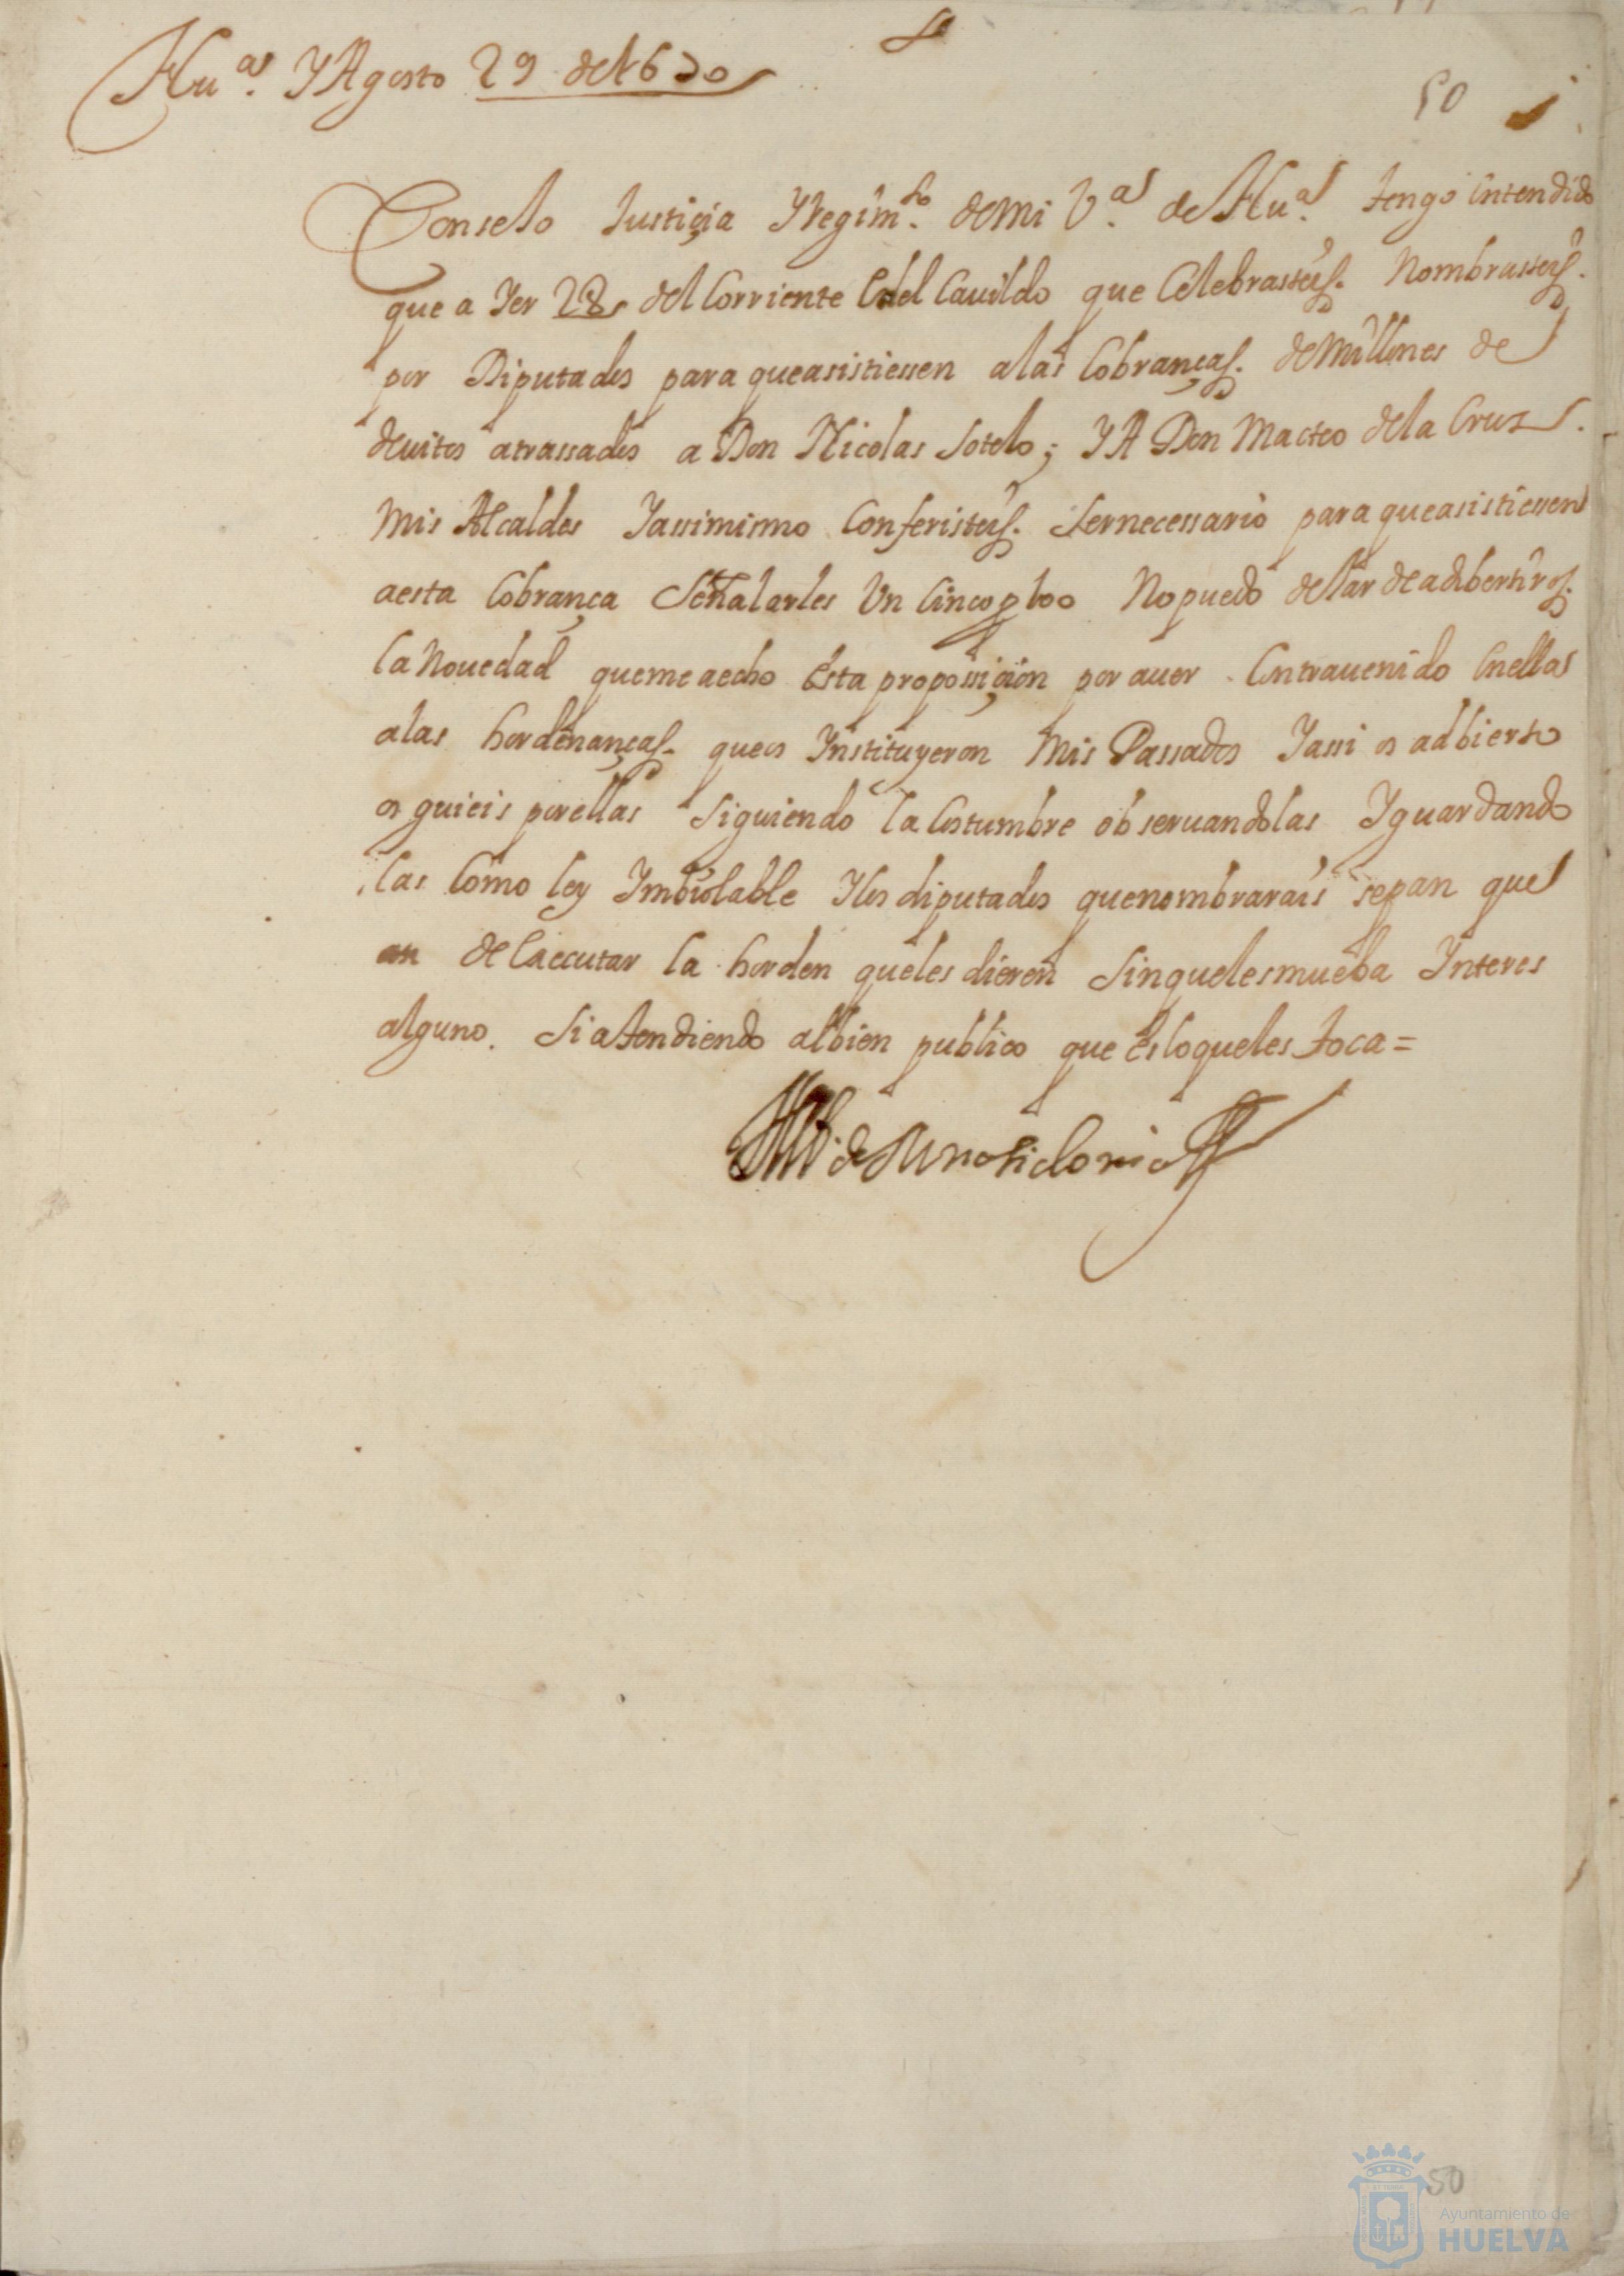 Huª. Y Agosto 29 de 1670
50
Conselo Justiçia Y Regimto. de mi Vª. de Huª. tengo entendido
que a Yer 28 del Corriente En el Cauildo que Celebrasteis. Nombrasteis.
por Diputados para que asistiessen a las Cobranças. de Millones de
deuitos atrassados a Don Nicolas Sotelo; Y A Don Matteo de la Cruz.
Mis Alcaldes Yassimismo Conferisteis. Ser necessario para que asistiessen
a esta Cobrança Señalarles Un Cinco p 100 No puedo dexar de adbertiros.
la Nouedad que me a echo Esta proposiçion por auer Contrauenido En ellas
a las hordenanças. que os Ynstituyeron Mis Passados Yassi os adbierto
os guieis por ellas Siguiendo la Costumbre obseruandolas Y guardando
las Como ley Ymbiolable Y los diputados que nombrarais sepan que
an de Executar la horden que les dieren Sin que les mueba Ynteres
alguno. Si atendiendo al bien publico que Es lo que les toca=
de Medinasidonia
50
Ayuntamiento de
HUELVA